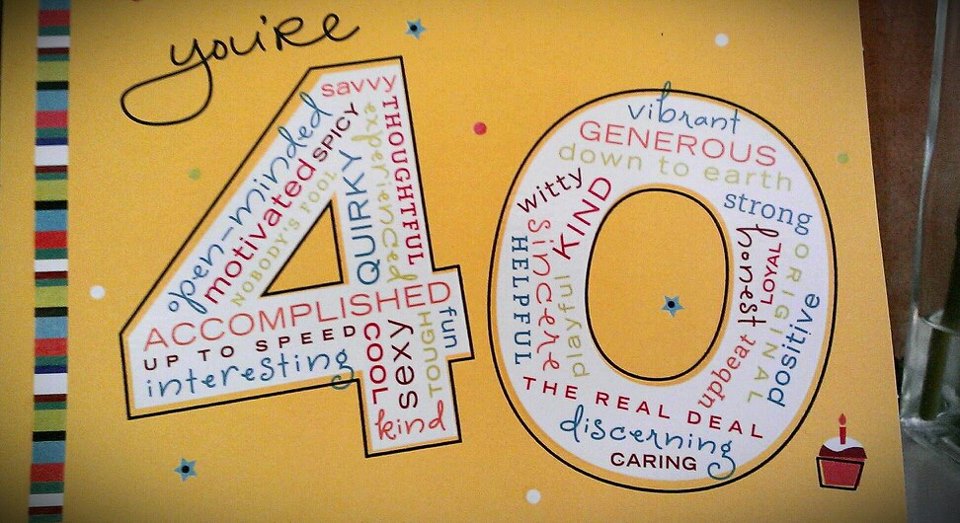 you're
savvy
THOUGHTFUL
experienced
SPICY
QUIRKY
open-minded
motivated
NOBODY'S FOOL
ACCOMPLISHED
UP TO SPEED
interesting
COOL
sexy
TOUGH
fun
kind
vibrant
GENEROUS
down to earth
witty
KIND
strong
sincere
HELPFUL
playful
honest
LOYAL
ORIGINAL
positive
upbeat
THE REAL DEAL
discerning
CARING